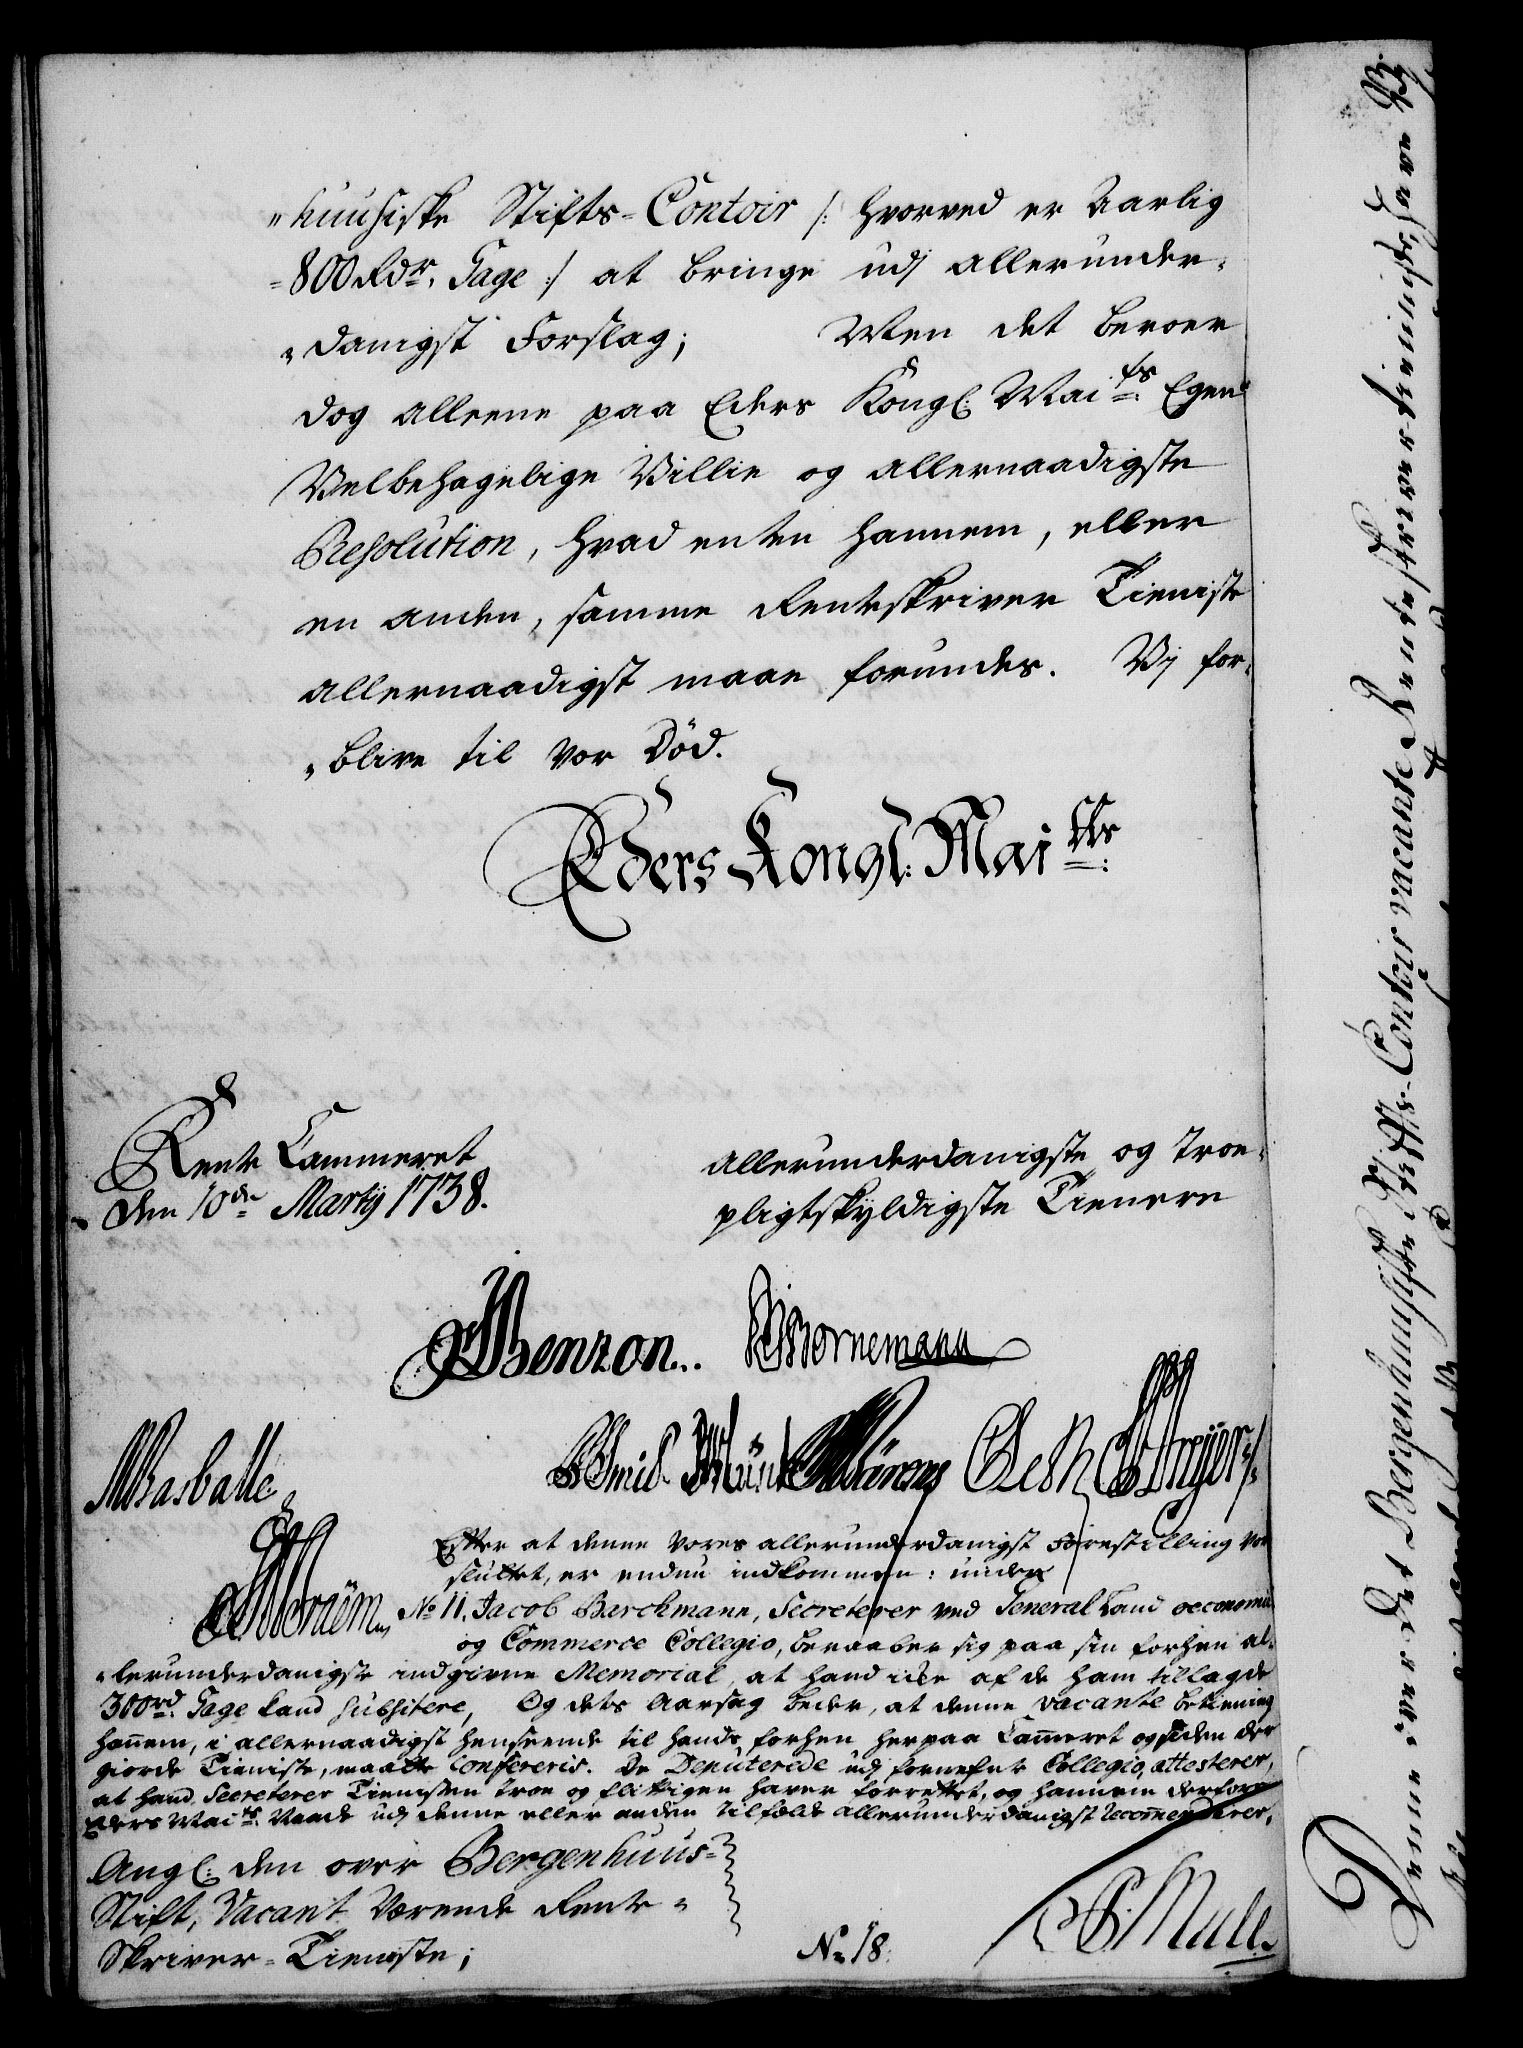 "huusiske Stifts=Contoir /: hvorved er Aarlig
=800 Rdr. Gage :/ at bringe udj allerunder=
"danigst Forslag; Men det beroer
dog alleene paa Eders Kongl: Maits. Egen
Velbehagelige Villie og allernaadigste
Resolution, hvad enten hannem, eller
en anden, samme Renteskriver Tieniste
allernaadigst maae forundes. Vj for=
"blive til vor Død.
Eders Kongl: Maitts:
Rente Cammeret
den 10de Martij 1738.
allerunderdanigste og troe=
pligtskyldigste Tienere
Benzon..
Bornemann
Basballe
Efter at denne vores allerunderdanigst Forestilling var
sluttet, er endnu indkommen: under
No 11. Jacob Barchmann, Secreterer ved General Land Oeconomie
og Commerce Collegio, beraaber sig paa sin forhen al=
"lerunderdanigste indgivne Memorial, at hand icke af de ham tillagde
300rd. Gage kand subsistere, Og dets Aarsag beder, at denne vacante betiening
hannem, i allernaadigst henseende til hands forhen her paa Cammeret og siden der
giorde Tieniste, maatte confereris. De Deputerede udj fornefnte Collegio, attesterer,
at hand Secreterer Tienisten troe og flittigen haver forrettet, og hannem derfore
Eders Maits. Naade udj denne eller anden tilfælde allerunderdanigst recommenderer.
Angl: den over Bergenhuus=
Stift, Vacant Værende Rente=
Skriver=Tieniste;
No 18.
Mull
Denne over det Bergenhuusiske Stifts=Contoir vacante Renteskriver tieniste, have